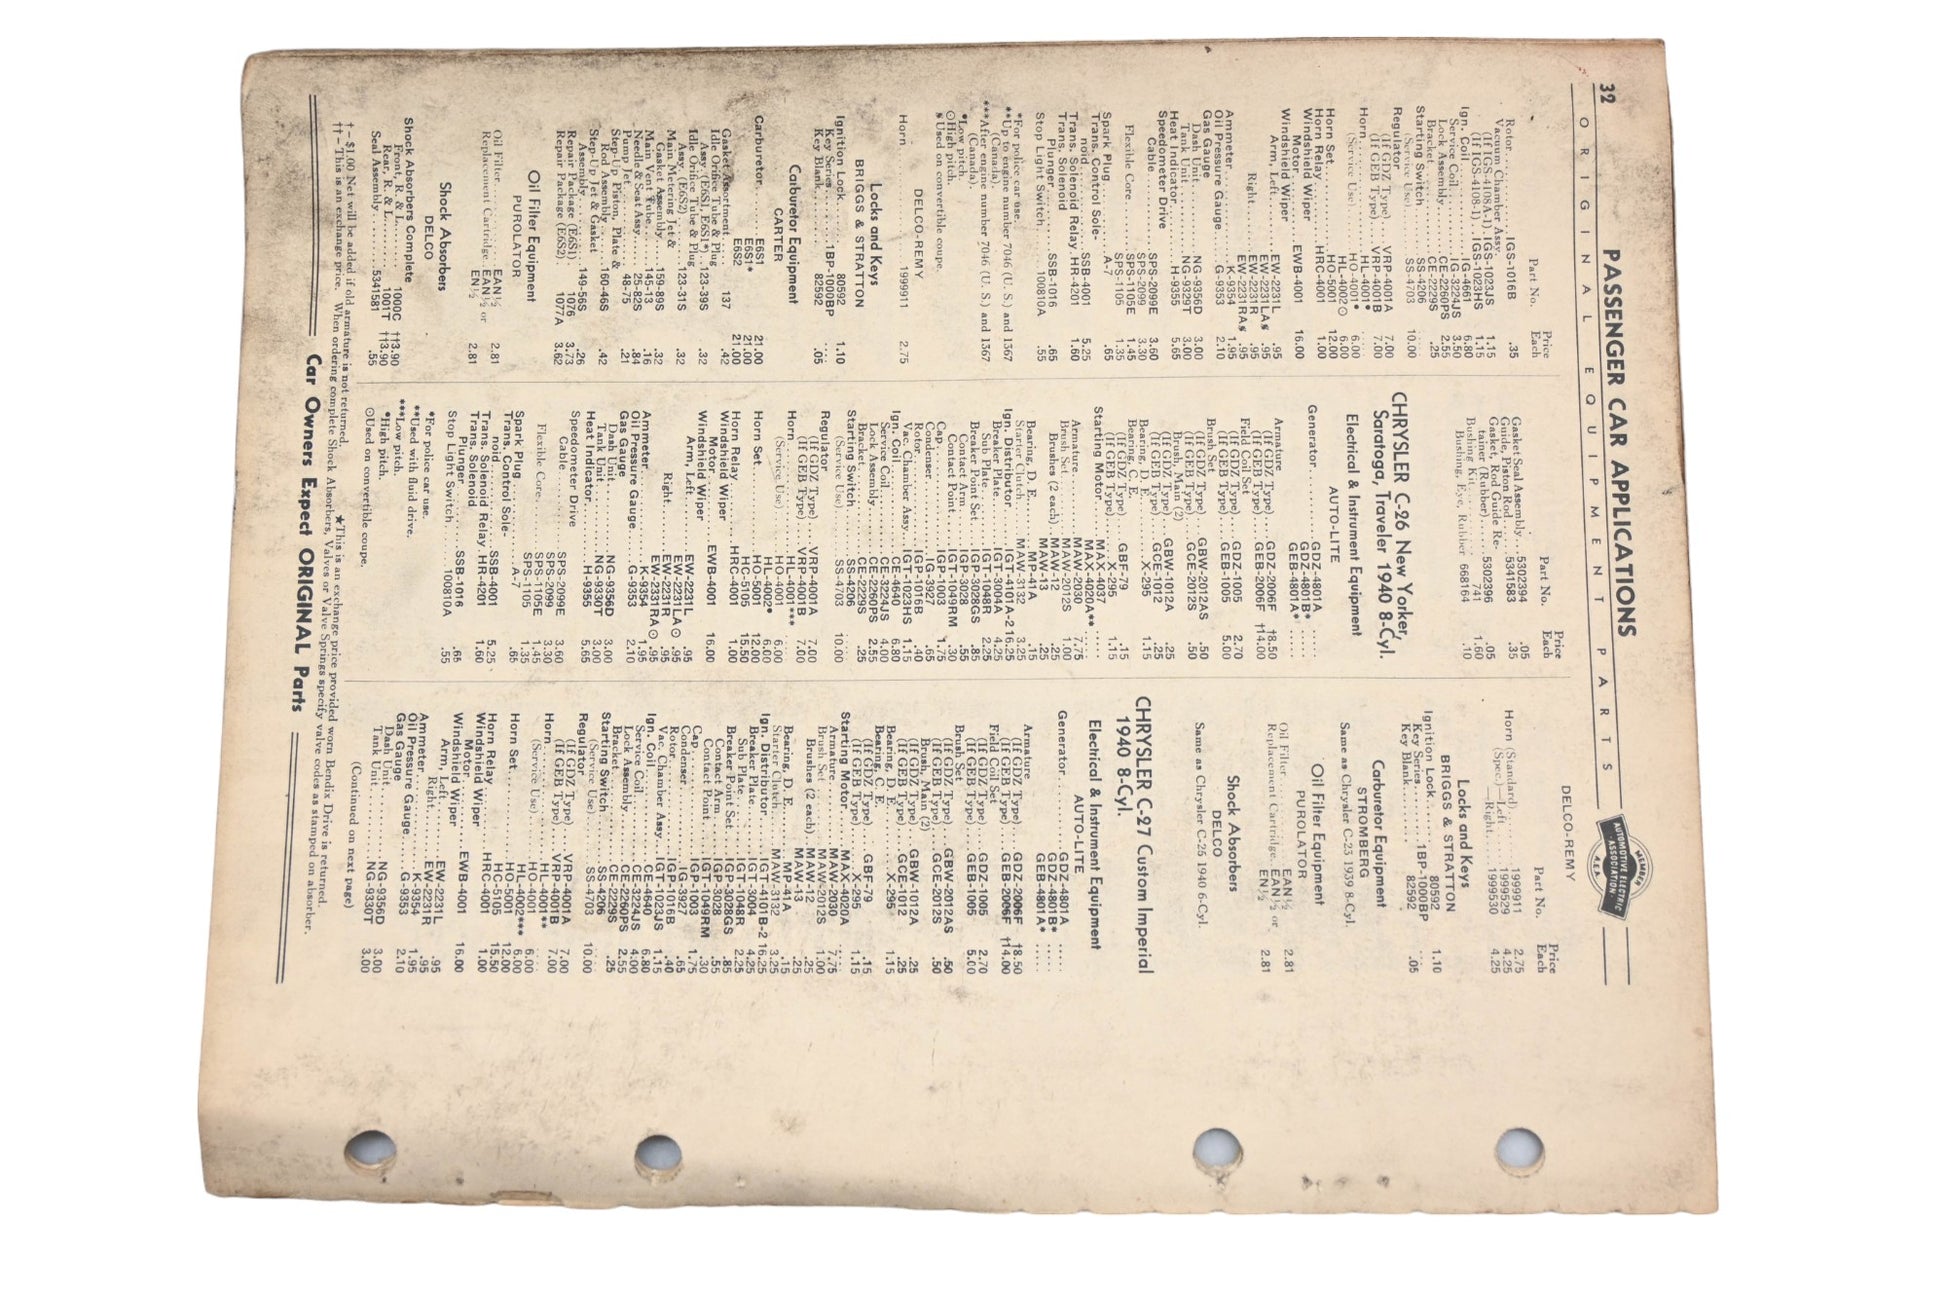 32
PASSENGER CAR APPLICATIONS
ORIGINAL EQUIPMENT PARTS
MEMBER
AUTOMOTIVE ELECTRIC
ASSOCIATION
A.E.A.
Part No. Price Each
Rotor.....IGS-1016B .35
Vacuum Chamber Assy.
(If IGS-4108A-1).IGS-1023JS 1.15
(If IGS-4108-1).IGS-1023HS 1.15
Ign. Coil.....IG-4661 6.80
Service Coil.....IG-3224JS 3.50
Lock Assembly.....CE-2260PS 2.55
Bracket.....CE-2229S .25
Starting Switch.....SS-4206
(Service Use).....SS-4703 10.00
Regulator
(If GDZ Type).....VRP-4001A 7.00
(If GEB Type).....VRP-4001B 7.00
Horn.....HL-4001*
(Service Use).....HO-4001* 6.00
HL-4002⊙ 6.00
Horn Set.....HO-5001 12.00
Horn Relay.....HRC-4001 1.00
Windshield Wiper
Motor.....EWB-4001 16.00
Windshield Wiper
Arm, Left.....EW-2231L .95
EW-2231LA§ .95
Right.....EW-2231R .95
EW-2231RA§ .95
Ammeter.....K-9354 1.95
Oil Pressure Gauge.....G-9353 2.10
Gas Gauge
Dash Unit.....NG-9356D 3.00
Tank Unit.....NG-9329T 3.00
Heat Indicator.....H-9355 5.65
Speedometer Drive
Cable.....SPS-2099E 3.60
SPS-2099 3.30
Flexible Core.....SPS-1105E 1.45
SPS-1105 1.35
Spark Plug.....A-7 .65
Trans. Control Sole-
noid.....SSB-4001 5.25
Trans. Solenoid Relay.HR-4201 1.60
Trans. Solenoid
Plunger.....SSB-1016 .65
Stop Light Switch.....100810A .55
*For police car use.
**Up to engine number 7046 (U. S.) and 1367
(Canada).
***After engine number 7046 (U. S.) and 1367
(Canada).
*Low pitch.
⊙High pitch.
§Used on convertible coupe.
DELCO-REMY
Horn.....1999911 2.75
Locks and Keys
BRIGGS & STRATTON
Ignition Lock.....80592 1.10
Key Series.....1BP-1000BP
Key Blank.....82592 .05
Carburetor Equipment
CARTER
Carburetor.....E6S1 21.00
E6S1* 21.00
E6S2 21.00
Gasket Assortment.....137 .42
Idle Orifice Tube & Plug
Assy. (E6S1, E6S1*).123-39S .32
Idle Orifice Tube & Plug
Assy. (E6S2).....123-31S .32
Main Metering Jet &
Gasket Assembly.....159-89S .32
Main Vent Tube.....145-13 .16
Needle & Seat Assy.....25-82S .84
Pump Jet.....48-75 .21
Step-Up Piston, Plate &
Rod Assembly.....160-46S .42
Step-Up Jet & Gasket
Assembly.....149-56S .26
Repair Package (E6S1) 1076 3.73
Repair Package (E6S2) 1077A 3.62
Oil Filter Equipment
PUROLATOR
Oil Filter.....EAN½ 2.81
Replacement Cartridge.EAN½ or
EN½ 2.81
Shock Absorbers
DELCO
Shock Absorbers Complete
Front, R & L.....1000C ††3.90
Rear, R. & L.....1001T ††3.90
Seal Assembly.....5341581 .55
Part No. Price Each
Gasket Seal Assembly...5302394 .05
Guide, Piston Rod.....5341583 .35
Gasket, Rod Guide Re-
tainer (Rubber).....5302396 .05
Bushing Kit.....741 1.60
Bushing, Eye, Rubber 668164 .10
CHRYSLER C-26 New Yorker,
Saratoga, Traveler 1940 8-Cyl.
Electrical & Instrument Equipment
AUTO-LITE
Generator.....GDZ-4801A
GDZ-4801B*
GEB-4801A*
Armature
(If GDZ Type)....GDZ-2006F †8.50
(If GEB Type)....GEB-2006F ††14.00
Field Coil Set
(If GDZ Type)....GDZ-1005 2.70
(If GEB Type)....GEB-1005 5.00
Brush Set
(If GDZ Type)....GBW-2012AS .50
(If GEB Type)....GCE-2012S .50
Brush, Main (2)
(If GDZ Type)....GBW-1012A .25
(If GEB Type)....GCE-1012 .25
Bearing, D. E.....X-295 1.15
Bearing, C. E.
(If GDZ Type)....GBF-79 .15
(If GEB Type)....X-295 1.15
Starting Motor.....MAX-4037
MAX-4020A**
Armature.....MAW-2030 7.75
Brush Set.....MAW-2012S 1.00
Brushes (2 each).MAW-12 .25
MAW-13 .25
Bearing, D. E.....MP-41A .15
Starter Clutch.....MAW-3132 3.25
Ign. Distributor.....IGT-4101A-2 16.25
Breaker Plate.....IGT-3004A 4.25
Sub Plate.....IGT-1048R 2.25
Breaker Point Set..IGP-3028GS .85
Contact Arm.....IGP-3028 .55
Contact Point.....IGT-1049RM .30
Cap.....IGP-1003 1.75
Condenser.....IG-3927 .65
Rotor.....IGP-1016B .40
Vac. Chamber Assy..IGT-1023HS 1.15
Ign. Coil.....CE-4640 6.80
Service Coil.....CE-3224JS 4.00
Lock Assembly.....CE-2260PS 2.55
Bracket.....CE-2229S .25
Starting Switch.....SS-4206
(Service Use).....SS-4703 10.00
Regulator
(If GDZ Type)....VRP-4001A 7.00
(If GEB Type)....VRP-4001B 7.00
Horn.....HL-4001***
(Service Use).....HO-4001 6.00
HL-4002* 6.00
Horn Set.....HO-5001 12.00
HC-5105 15.50
Horn Relay.....HRC-4001 1.00
Windshield Wiper
Motor.....EWB-4001 16.00
Windshield Wiper
Arm, Left.....EW-2231L .95
EW-2231LA⊙ .95
Right.....EW-2231R .95
EW-2231RA⊙ .95
Ammeter.....K-9354 1.95
Oil Pressure Gauge.....G-9353 2.10
Gas Gauge
Dash Unit.....NG-9356D 3.00
Tank Unit.....NG-9330T 3.00
Heat Indicator.....H-9355 5.65
Speedometer Drive
Cable.....SPS-2099E 3.60
SPS-2099 3.30
Flexible Core.....SPS-1105E 1.45
SPS-1105 1.35
Spark Plug.....A-7 .65
Trans. Control Sole-
noid.....SSB-4001 5.25
Trans. Solenoid Relay HR-4201 1.60
Trans. Solenoid
Plunger.....SSB-1016 .65
Stop Light Switch.....100810A .55
*For police car use.
**Used with fluid drive.
***Low pitch.
*High pitch.
⊙Used on convertible coupe.
DELCO-REMY
Part No. Price Each
Horn (Standard).....1999911 2.75
(Spec.)—Left.....1999529 4.25
—Right.....1999530 4.25
Locks and Keys
BRIGGS & STRATTON
Ignition Lock.....80592 1.10
Key Series.....1BP-1000BP
Key Blank.....82592 .05
Carburetor Equipment
STROMBERG
Same as Chrysler C-23 1939 8-Cyl.
Oil Filter Equipment
PUROLATOR
Oil Filter.....EAN½ 2.81
Replacement Cartridge.EAN½ or
EN½ 2.81
Shock Absorbers
DELCO
Same as Chrysler C-25 1940 6-Cyl.
CHRYSLER C-27 Custom Imperial
1940 8-Cyl.
Electrical & Instrument Equipment
AUTO-LITE
Generator.....GDZ-4801A
GDZ-4801B*
GEB-4801A*
Armature
(If GDZ Type)....GDZ-2006F †8.50
(If GEB Type)....GEB-2006F ††14.00
Field Coil Set
(If GDZ Type)....GDZ-1005 2.70
(If GEB Type)....GEB-1005 5.00
Brush Set
(If GDZ Type)....GBW-2012AS .50
(If GEB Type)....GCE-2012S .50
Brush, Main (2)
(If GDZ Type)....GBW-1012A .25
(If GEB Type)....GCE-1012 .25
Bearing, D. E.....X-295 1.15
Bearing, C. E.
(If GDZ Type)....GBF-79 .15
(If GEB Type)....X-295 1.15
Starting Motor.....MAX-4020A
Armature.....MAW-2030 7.75
Brush Set.....MAW-2012S 1.00
Brushes (2 each).MAW-12 .25
MAW-13 .25
Bearing, D. E.....MP-41A .15
Starter Clutch.....MAW-3132 3.25
Ign. Distributor.....IGT-4101B-2 16.25
Breaker Plate.....IGT-3004 4.25
Sub Plate.....IGT-1048R 2.25
Breaker Point Set..IGP-3028GS .85
Contact Arm.....IGP-3028 .55
Contact Point.....IGT-1049RM .30
Cap.....IGP-1003 1.75
Condenser.....IG-3927 .65
Rotor.....IGP-1016B .40
Vac. Chamber Assy..IGT-1023JS 1.15
Ign. Coil.....CE-4640 6.80
Service Coil.....CE-3224JS 4.00
Lock Assembly.....CE-2260PS 2.55
Bracket.....CE-2229S .25
Starting Switch.....SS-4206
(Service Use).....SS-4703 10.00
Regulator
(If GDZ Type)....VRP-4001A 7.00
(If GEB Type)....VRP-4001B 7.00
Horn.....HL-4001**
(Service Use).....HO-4001 6.00
HL-4002*** 6.00
Horn Set.....HO-5001 12.00
HC-5105 15.50
Horn Relay.....HRC-4001 1.00
Windshield Wiper
Motor.....EWB-4001 16.00
Windshield Wiper
Arm, Left.....EW-2231L .95
Right.....EW-2231R .95
Ammeter.....K-9354 1.95
Oil Pressure Gauge.....G-9353 2.10
Gas Gauge
Dash Unit.....NG-9356D 3.00
Tank Unit.....NG-9330T 3.00
(Continued on next page)
†–$1.00 Net will be added if old armature is not returned. ★This is an exchange price provided worn Bendix Drive is returned.
††–This is an exchange price. When ordering complete Shock Absorbers, Valves or Valve Springs specify valve codes as stamped on absorber.
Car Owners Expect ORIGINAL Parts